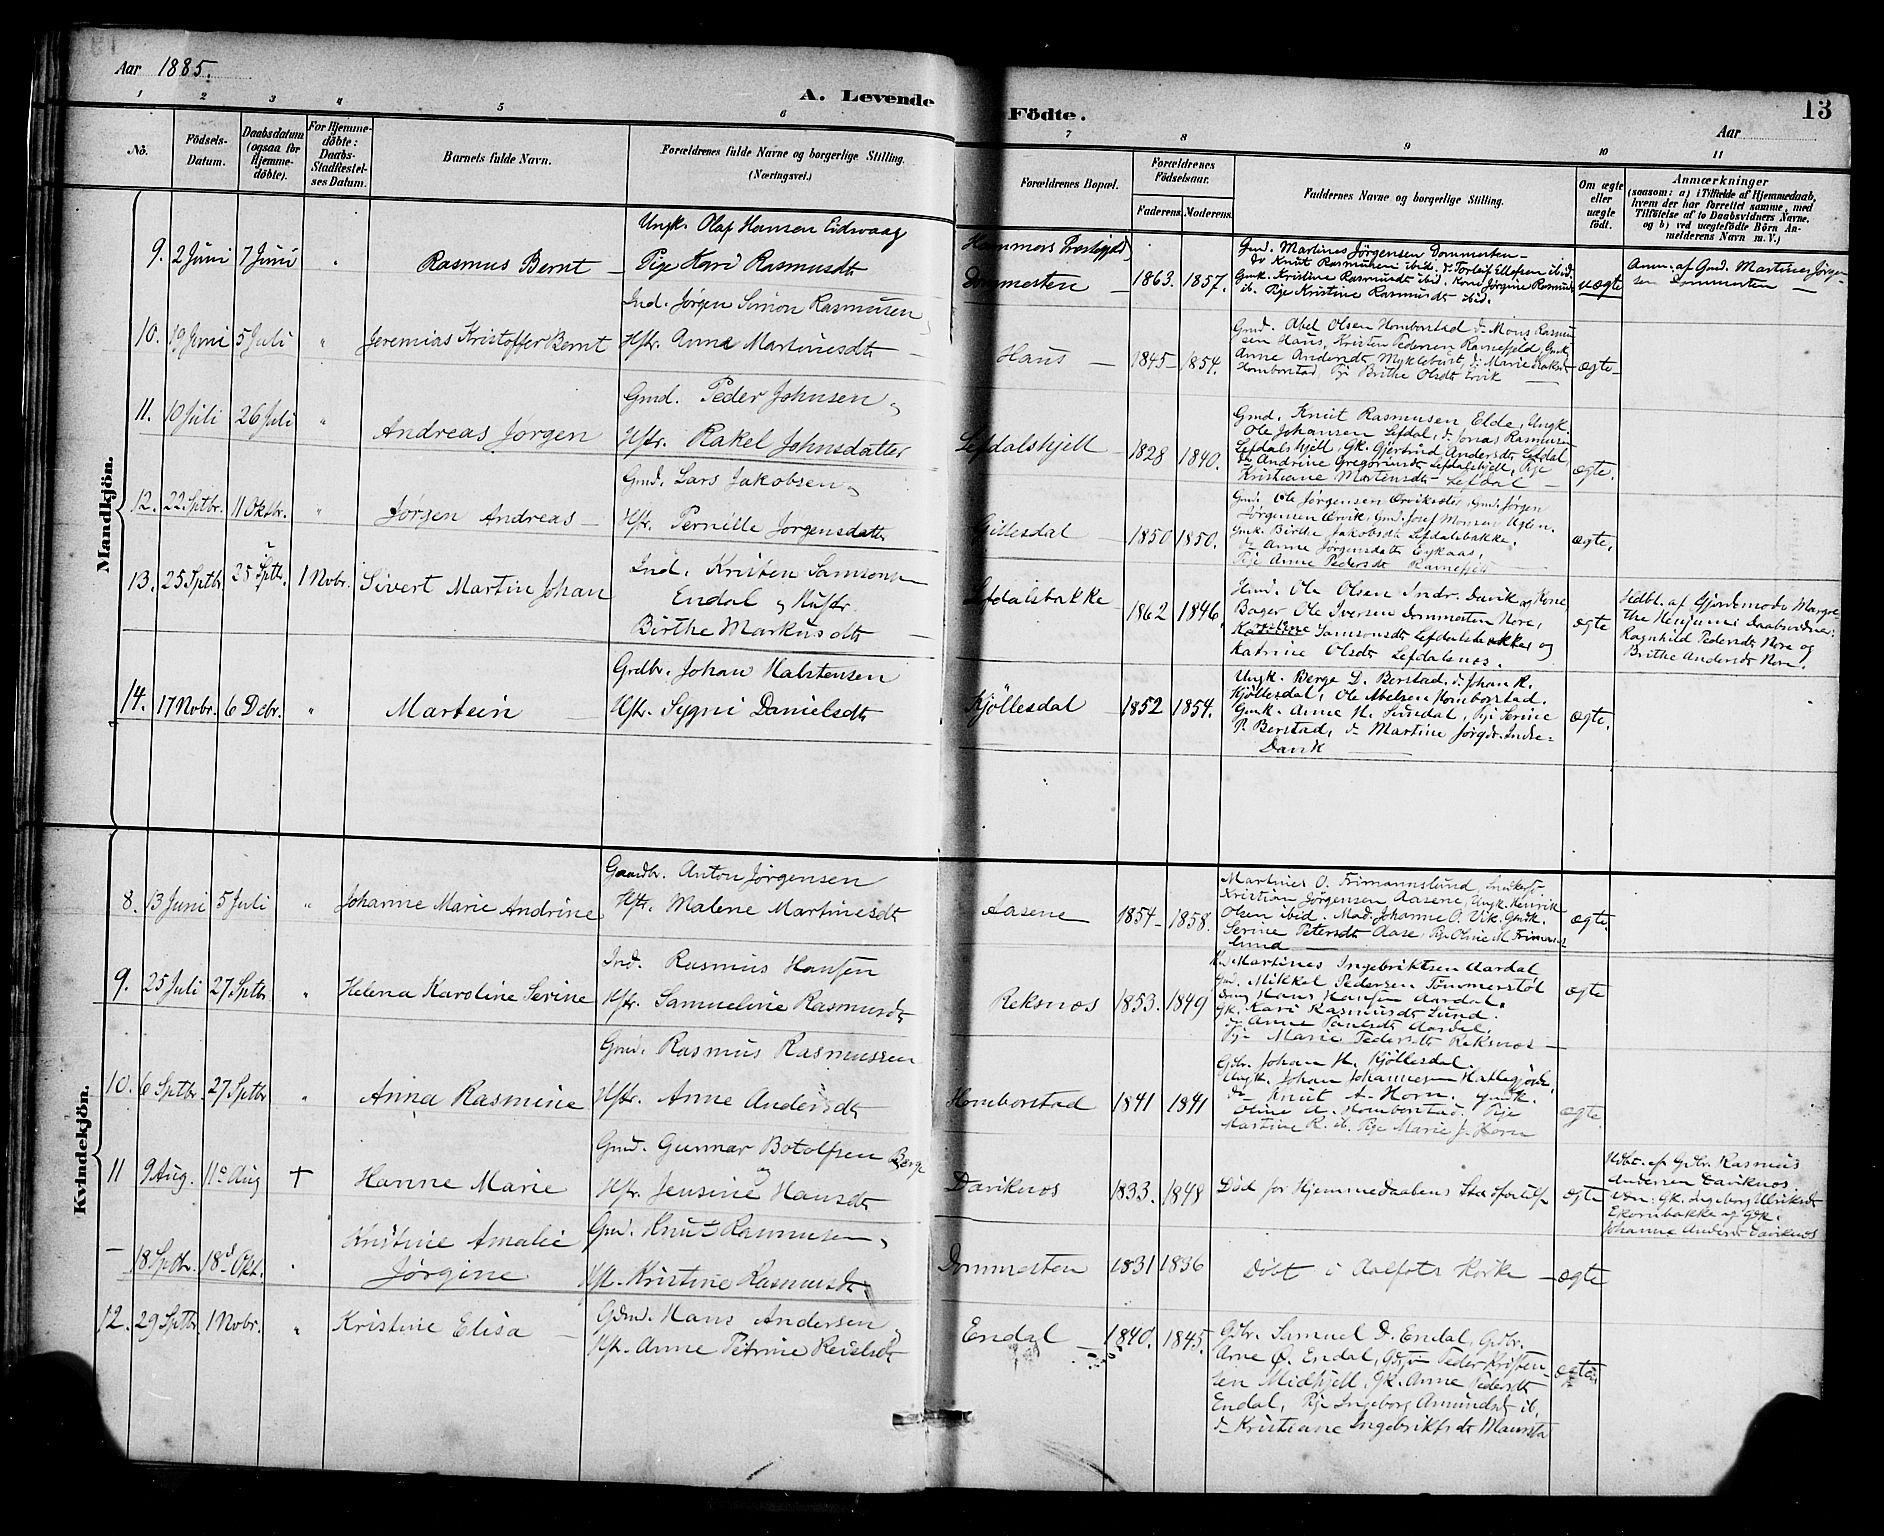 Aar 1885.
A. Levende Födte.
Aar
13
1 2 3 4 5 6 7 8 9 10 11
No.
Födsels-
Datum.
Daabsdatum
(ogsaa for
Hjemme-
døbte).
For Hjemme-
døbte:
Daabs-
Stadfæstel-
ses Datum.
Barnets fulde Navn.
Forældrenes fulde Navne og borgerlige Stilling.
(Næringsvei.)
Forældrenes Bopæl.
Forældrenes
Födselsaar.
Faderens. Moderens.
Faddernes Navne og borgerlige Stilling.
Om ægte
eller
uægte
født.
Anmærkninger
(saasom: a) i Tilfælde af Hjemmedaab,
hvem der har forrettet samme, med
Tilføielse af to Daabsvidners Navne,
og b) ved uægtefødte Börn An-
melderens Navn m. V.)
Mandkjön.
9. 2 Juni 7 Juni " Rasmus Bernt –
Ungk. Olaf Hansen Eidsvaag
Pige Kari Rasmusdtr
Dommesten – 1863. 1857.
Gmd. Martines Jørgensen Dommesten –
do Knut Rasmusen ibid. do Torleif Ellefsen ibid.
Gmk. Kristine Rasmusdt ibid. Kone Jørgine Rasmusdt
ib. Pige Kristine Rasmusdt ibid.
uægte
Anm. af Gmd. Martines Jørgen-
sen Dommesten –
10. 19 Juni 5 Juli " Jeremias Kristoffer Bernt
Ind. Jørgen Simon Rasmusen,
Hstr. Anne Martinesdtr –
Haus – 1845 – 1854.
Gmd. Abel Olsen Homborstad, do Mons Rasmu-
sen Haus, Kristen Pedersen Ravnefjeld, Gmk.
Anne Andersdt Myklebust, do Marie Isaksdt
Homborstad Pige Brithe Olsdt Ervik –
ægte –
11. 10 Juli 26 Juli " Andreas Jørgen
Gmd. Peder Johnsen,
Hstr. Rakel Johnsdatter
Lefdalshjell – 1828 1840.
Gmd. Knut Rasmusen Elde, Ungk.
Ole Johansen Lefdal, do Jonas Rasmusen
Lefdalshjell, Gk. Gjertrud Andersdt Lefdal,
do Andrine Gregoriusdt Lefdalshjell, Pige
Kristiane Mortensdt Lefdal –
ægte.
12. 22 Sptbr. 11 Oktbr. " Jørgen Andreas –
Gmd. Lars Jakobsen,
Hstr. Pernille Jørgensdatter
Gillesdal – 1850 1850.
Gmd. Ole Jørgensen Gmd. Jørgen
Jørgensen Ørvik, Gmd. Josef Monsen
Gmk. Birthe Jakobsdt Lefdalsbakke.
do Anne Jørgensdatter
Pige Anne Pedersdt Ravnefjeld
ægte.
13. 25 Sptbr. 25 Sptbr. 1 Novbr. Sivert Martin Johan
Ind. Kristen Samsonsen
Endal og Hustr.
Birthe Markusdtr –
Lefdalsbakke – 1862 1846.
Hmd. Ole Olsen Indr. Davik og Kone
Bager Ole Iversen Dommesten Nore,
Samsonsdt Lefdalsbakke og
Katrine Olsdt Lefdalsnos.
ægte
Hdbt. af Gjordemoder Margre-
the Henjum: Daabsvidne:
Ragnhild Pedersdt Nore og
Brithe Andersdt Nore.
14. 17 Novbr. 6 Dcbr. " Martein
Grdbr. Johan Halstensen
Hstr. Sygni Danielsdtr
Kjöllesdal 1852 1854.
Ungk. Berge D. Berstad, do Johan R.
Kjöllesdal, Ole Abelsen Homborstad.
Gmk. Anne H. Sundal, Pige Serine
P. Berstad, do Martine Jørgdt. Indre-
Davik –
ægte.
Kvindekjön.
8. 13 Juni 5 Juli " Johanne Marie Andrine
Gaardbr. Anton Jørgensen
Hstr. Malene Martinesdt
Aasene 1854 – 1858.
Martines O. Frimannslund,
Kristian Jørgensen Aasene, Ungk. Henrik
Olsen ibid. Mad. Johanne O. Vik. Gmk.
Serine Petersdt Aase, Pige Oline M. Frimans-
lund –
ægte.
9. 25 Juli 27 Sptbr " Helena Karoline Serine
Ind. Rasmus Hansen
Hstr. Samueline Rasmusdt
Reksnos 1853. 1849
Martines Ingebriktsen Aardal
Gmd. Mikkel Pedersen Tömmerstöl
Hans Hansen Aardal.
Gk. Kari Rasmusdt Lund.
do Anne Paulsdt Aardal.
Pige Marie Pedersdt Reksnos –
ægte
10. 6 Sptbr 27 Sptbr " Anna Rasmine
Gmd. Rasmus Rasmussen
Hstr. Anne Andersdtr
Homborstad 1841 1841
Gdbr. Johan H. Kjöllesdal,
Ungk. Johan Johannesen
do Knut A. Horn. Gmk.
Oline A. Homborstad. Pige
Martine R. ib. Pige Marie J. Horn
ægte.
11 9 Aug. 11 Aug + Hanne Marie
Gmd. Gunnar Botolfsen Berge
og
Hstr. Jensine Hansdt
Daviknos 1833. 1848
Död før Hjemmedaabens Stadfæstelse
ægte
Hdbt. af Gdbr. Rasmus
Andersen Daviknos
Vdn: Gk. Ingeborg Ulriksdt
Ekornbakke og Gdk.
Johanne Andersdt Daviknos
– 18 Sptbr. 18 Okt. " Kristine Amalie
Jørgine
Gmd. Knut Rasmusen,
Hst. Kristine Rasmusdt
Dommesten 1831 1836
Döbt i Aalfots Kirke –
ægte
12. 29 Sptbr. 1 Novbr. " Kristine Elisa –
Gdmd. Hans Andersen,
Hstr. Anne Petrine Reielsdt
Endal – 1840. 1845.
Gdbr. Samuel D. Endal, Gdbr.
Arne Ø. Endal, Peder Kristen-
sen Midhjell, Gk. Anne Pedersdt
Endal, Pige Ingeborg Amundsdt ib.
do Kristiane Ingebriktsdt Maursta
ægte